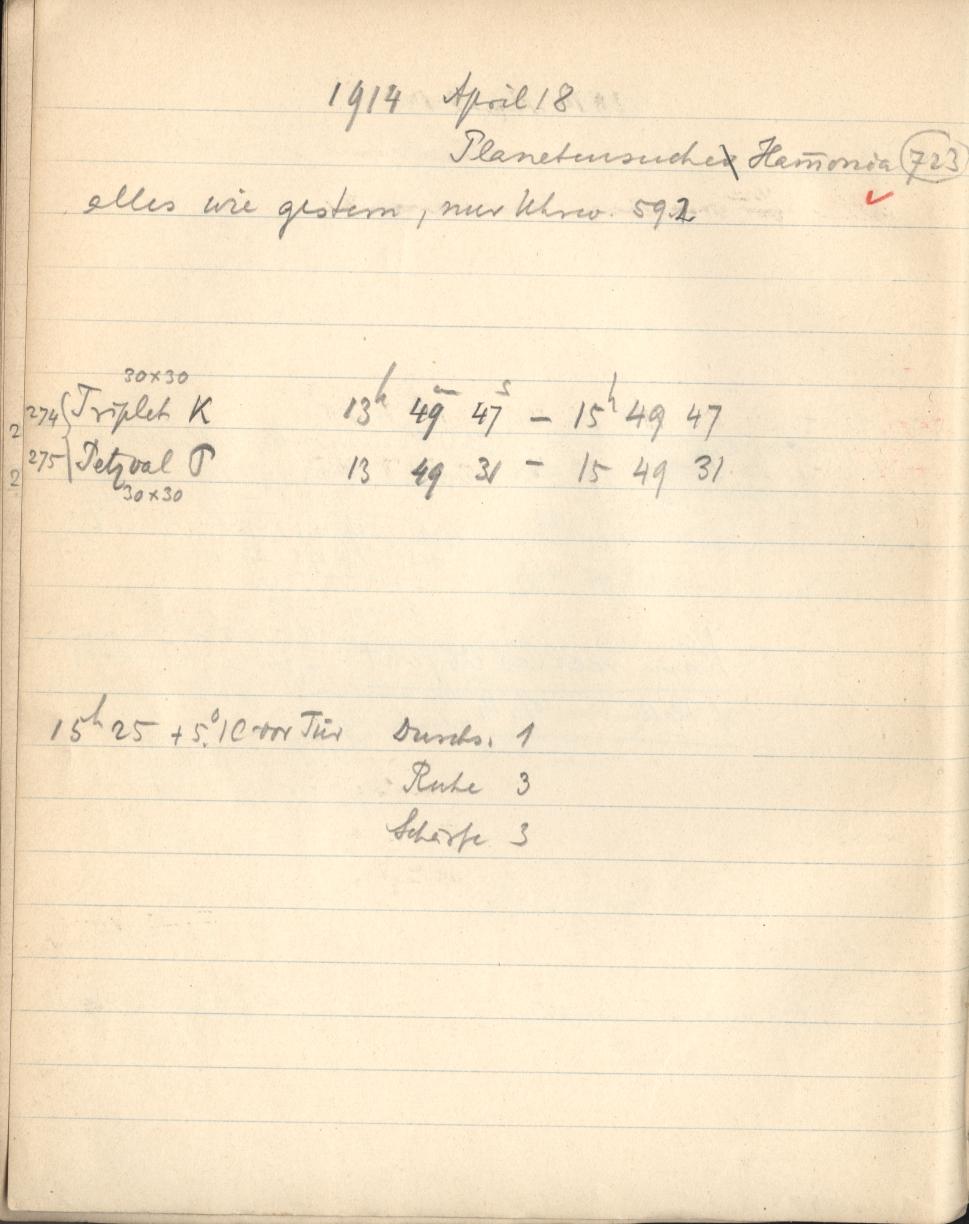 1914 April 18
Planetensuche Ham̅onia 723
alles wie gestern, nur Uhrw. 592
30×30
274 Triplet K 13h 49m 47s – 15h 49 47
2
275 Petzval P 13 49 31 – 15 49 31
2
30×30
15h 25 +5.°1C vor Tür Durchs. 1
Ruhe 3
Schärfe 3